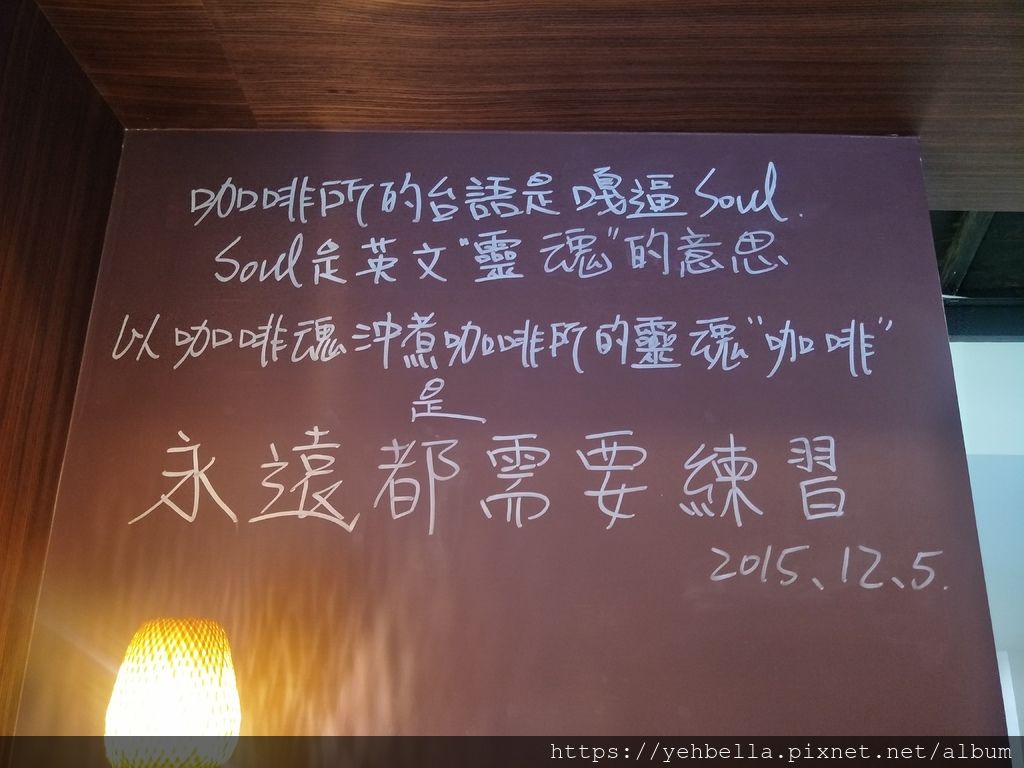 咖啡所的台語是嘎逼Soul.
Soul是英文"靈魂"的意思
以咖啡魂沖煮咖啡所的靈魂"咖啡"
是
永遠都需要練習
2015、12、5.
https://yehbella.pixnet.net/album